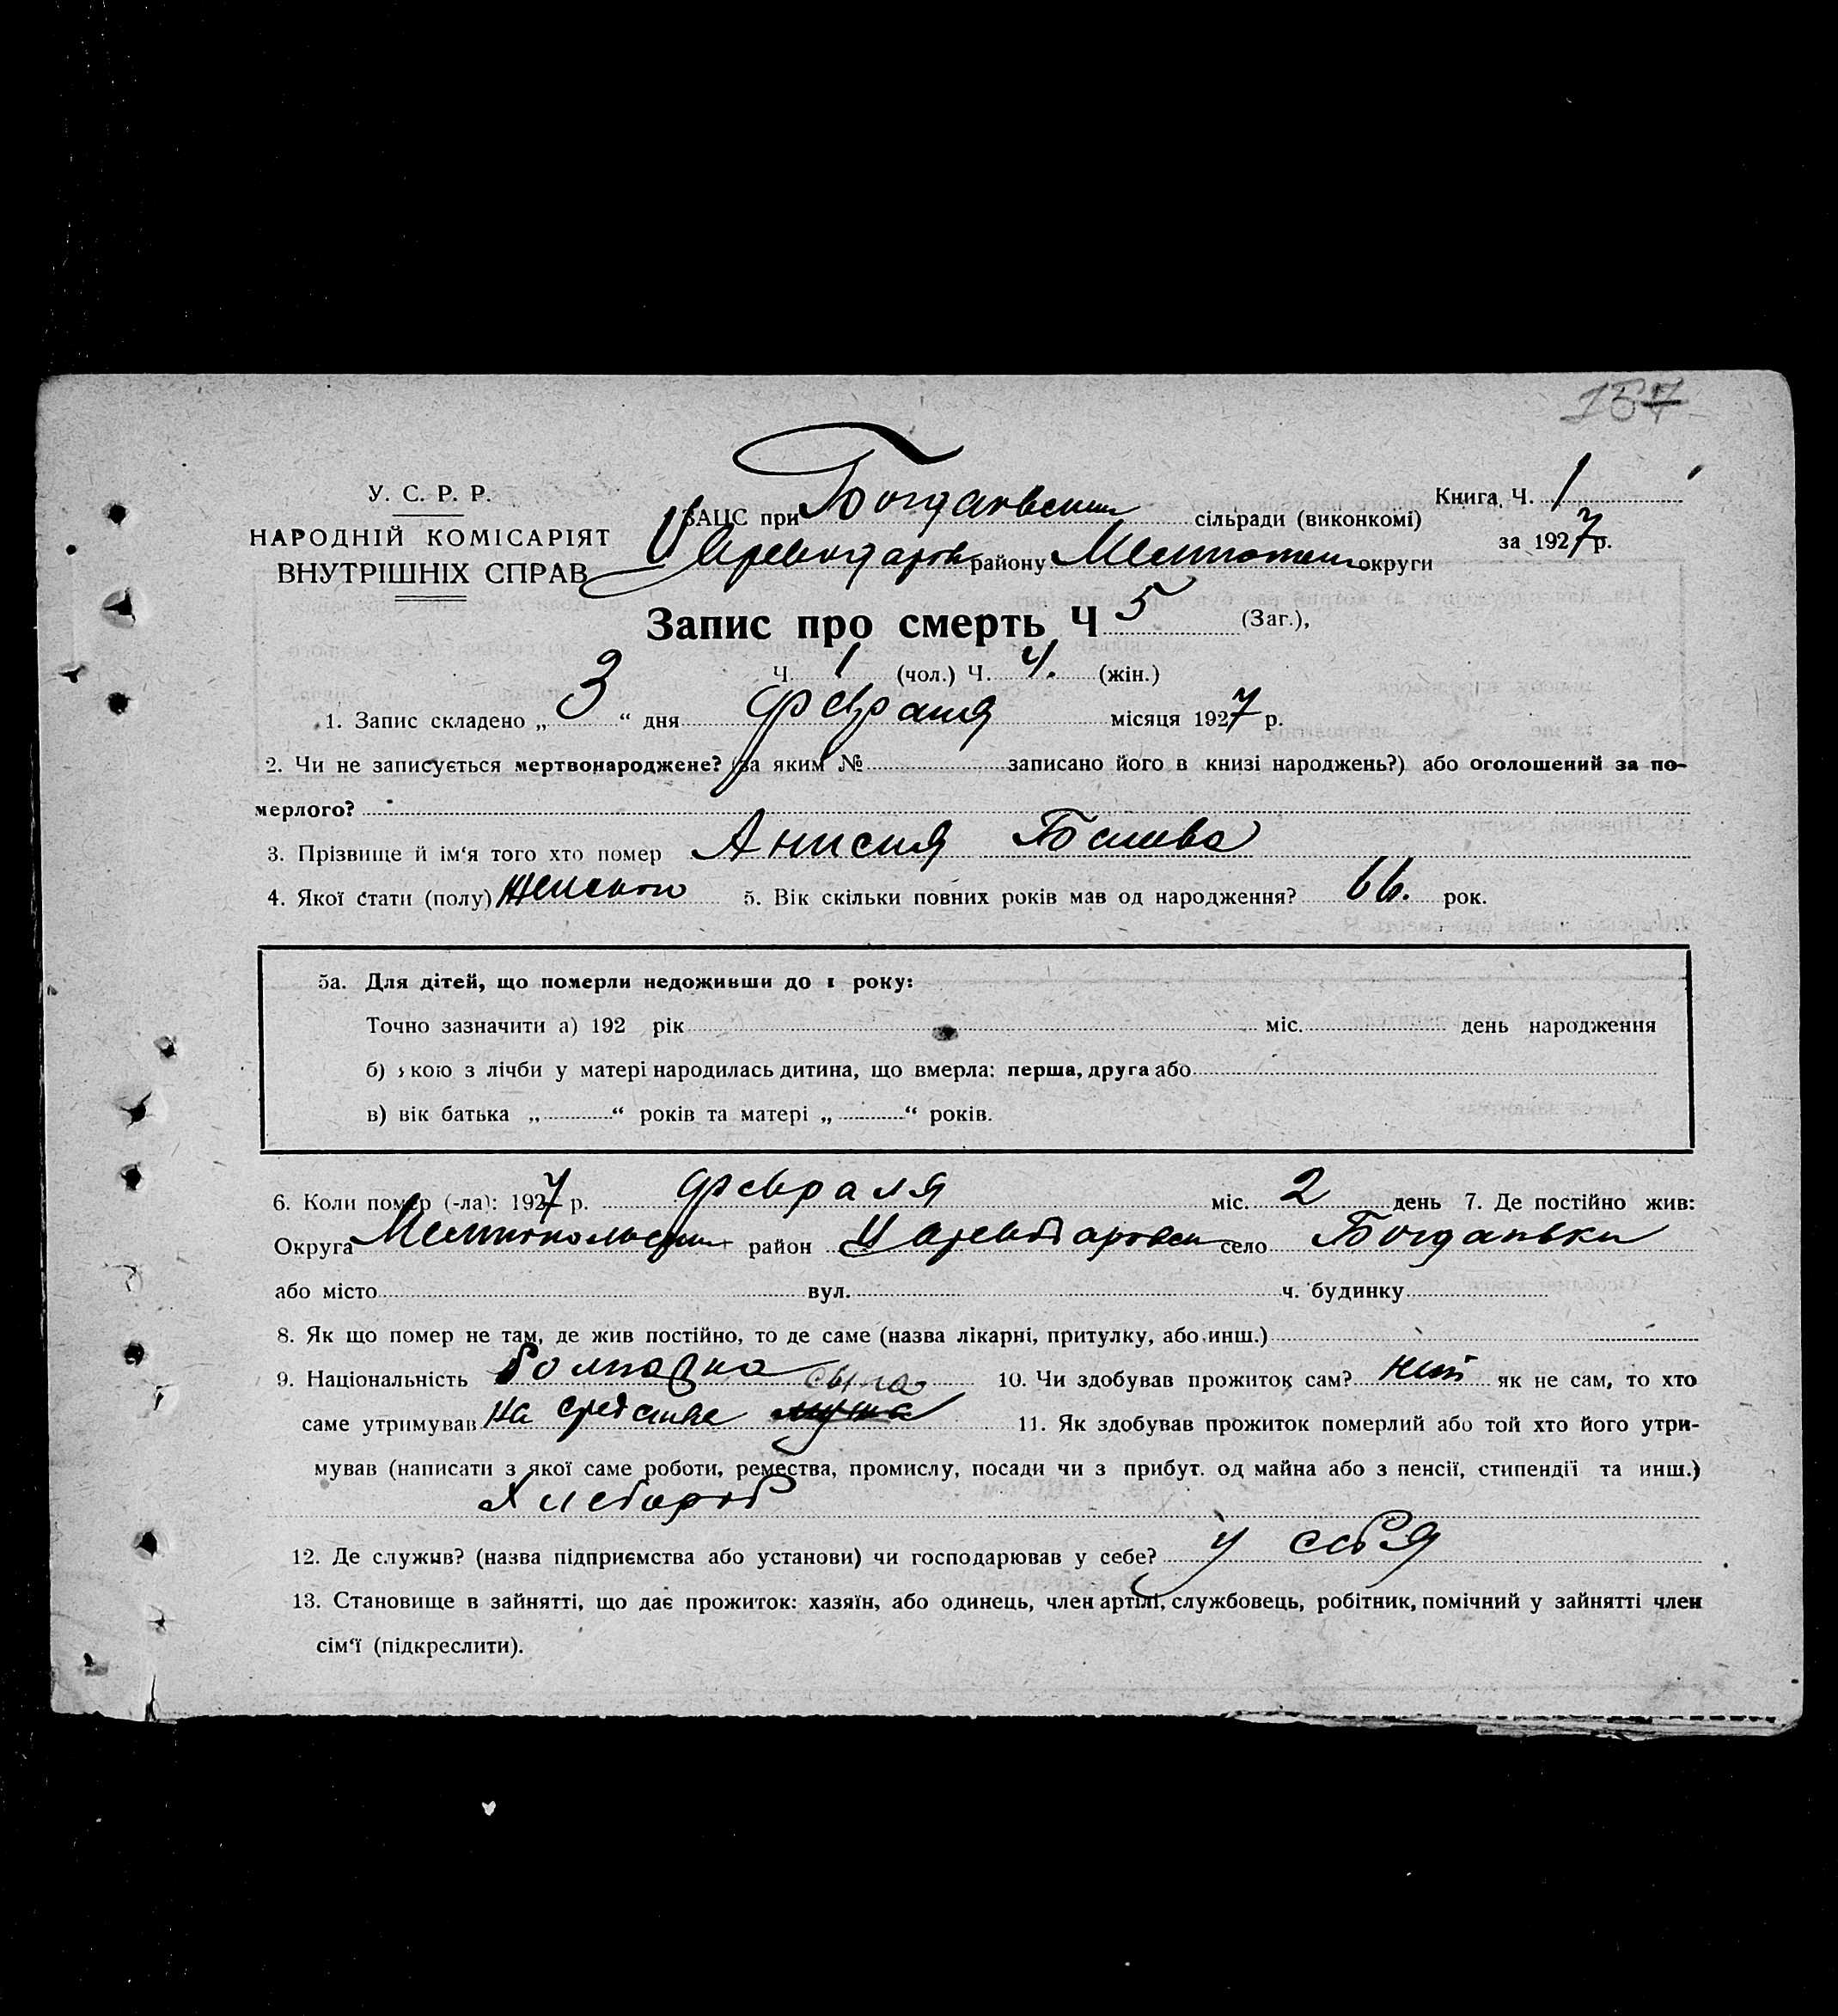 157
У. С. Р. Р.
НАРОДНІЙ КОМІСАРІЯТ
ВНУТРІШНІХ СПРАВ
ЗАЦС при Богдановском сільради (виконкомі)
Цареводаров району Мелитопол округи
Книга Ч. 1
за 1927 р.
Запис про смерть Ч 5 (Заг.),
Ч 1 (чол.) Ч. 4. (жін.)
1. Запис складено „ 3 “ дня февраля місяця 1927 р.
2. Чи не записується мертвонароджене? (за яким № записано його в книзі народжень?) або оголошений за по-
мерлого?
3. Прізвище й ім‘я того хто помер Анисия
4. Якої стати (полу) женского 5. Вік скільки повних років мав од народження? 66. рок.
5а. Для дітей, що померли недоживши до 1 року:
Точно зазначити а) 192 рік міс. день народження
б) якою з лічби у матері народилась дитина, що вмерла: перша, друга або
в) вік батька „ “ років та матері „ “ років.
6. Коли помер (-ла): 1927 р. февраля міс. 2 день 7. Де постійно жив:
Округа Мелитопольский район Царевдаровск село Богдановки
або місто вул. ч. будинку
8. Як що помер не там, де жив постійно, то де саме (назва лікарні, притулку, або инш.)
9. Національність болгарка 10. Чи здобував прожиток сам? нет як не сам, то хто
саме утримував на средства мужа сына 11. Як здобував прожиток померлий або той хто його утри-
мував (написати з якої саме роботи, ремества, промислу, посади чи з прибут. од майна або з пенсії, стипендії та инш.)
Хлебороб
12. Де служив? (назва підприємства або установи) чи господарював у себе? у себя
13. Становище в зайнятті, що дає прожиток: хазяїн, або одинець, член артілі, службовець, робітник, помічний у зайнятті член
сім‘ї (підкреслити).